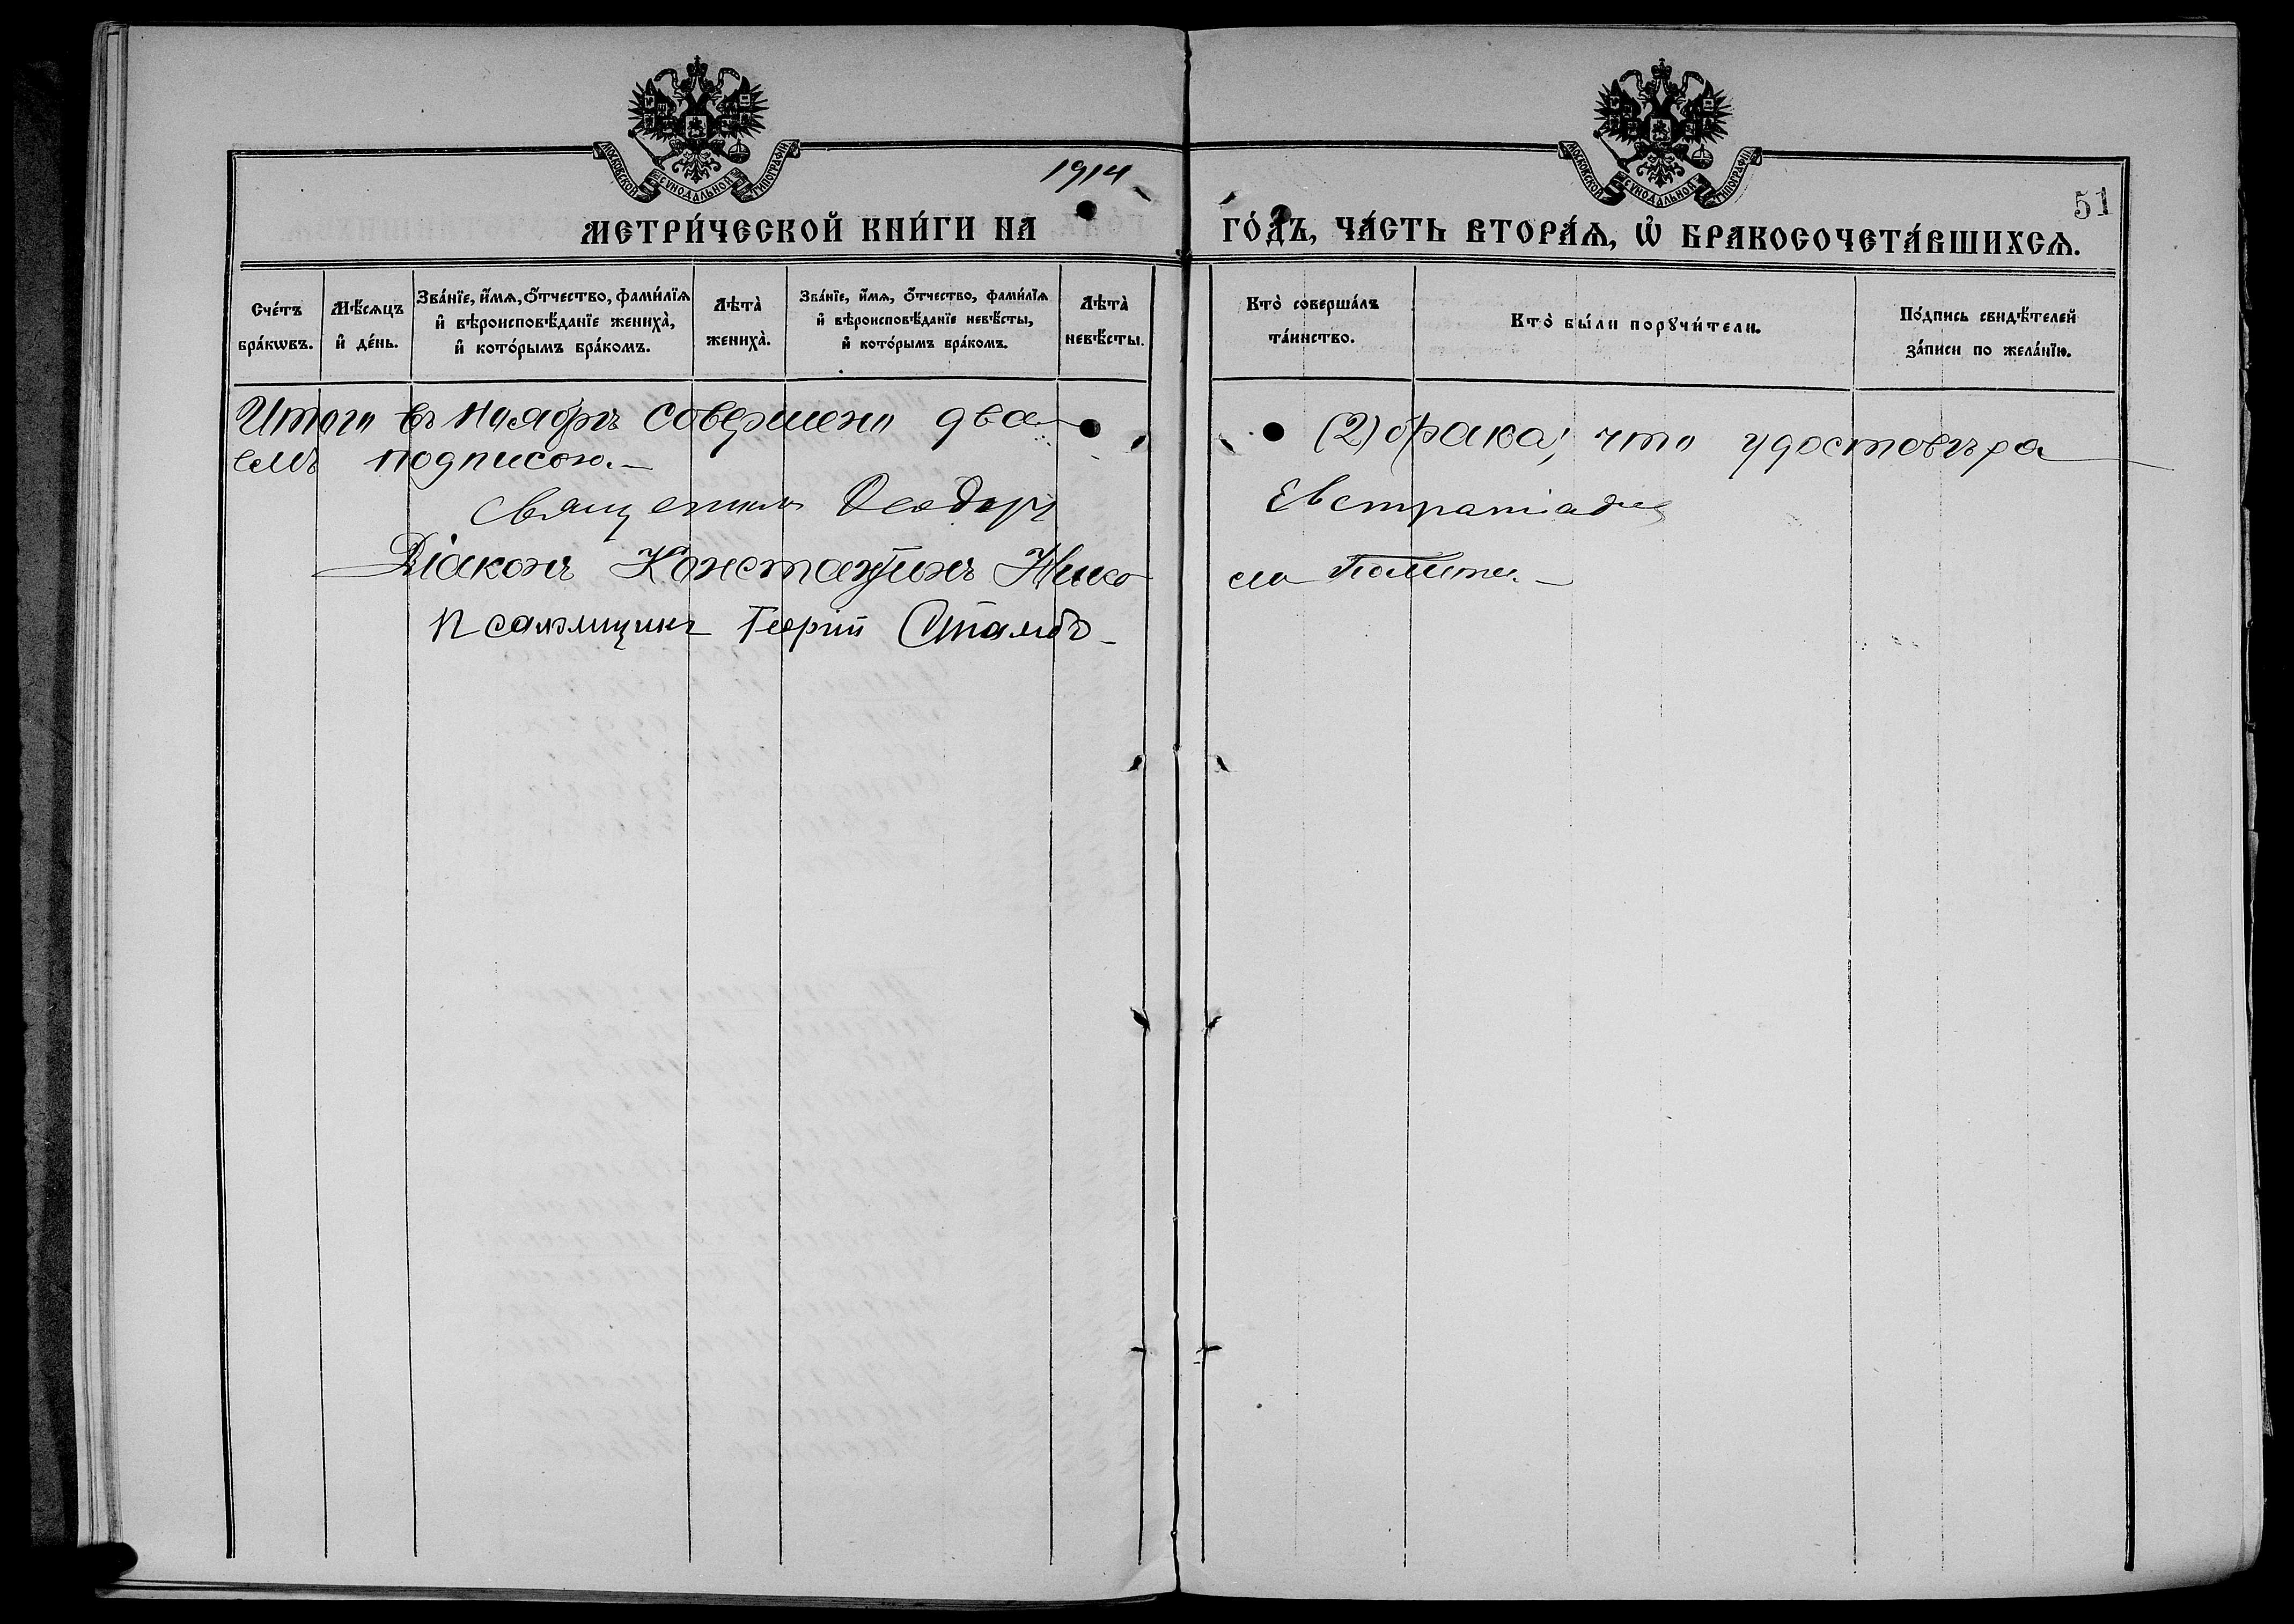 МОСКОВСКОЙ СѴНОДАЛЬНОЙ ТИПОГРАФІИ
МОСКОВСКОЙ СѴНОДАЛЬНОЙ ТИПОГРАФІИ
1914
51
МЕТРИ́ЧЕСКОЙ КНИ́ГИ НА ГО́ДЪ, ЧА́СТЬ ВТОРА́Ѧ, Ѽ БРАКОСОЧЕТА́ВШИХСѦ.
Сче́тъ бра́кѡвъ.
Мѣ́сѧцъ и҆ де́нь.
Зва́нїе, и҆́мѧ, о҆́тчество, фами́лїѧ и҆ вѣроисповѣ́данїе жениха̀, и҆ кото́рымъ бра́комъ.
Лѣта̀ жениха̀.
Зва́нїе, и҆́мѧ, о҆́тчество, фами́лїѧ и҆ вѣроисповѣ́данїе невѣ́сты, и҆ кото́рымъ бра́комъ.
Лѣта̀ невѣ́сты.
Кто̀ соверша́лъ та́инство.
Кто̀ бы́ли порꙋчи́тели.
По́дпись свидѣ́телей за́писи по жела́нїю.
Итого въ Ноябрѣ совершено два (2) брака; что удостовѣра
емъ подписью.
Священникъ Ѳеодоръ Евстратіади
Діаконъ Константинъ
Псаломщикъ Георгій